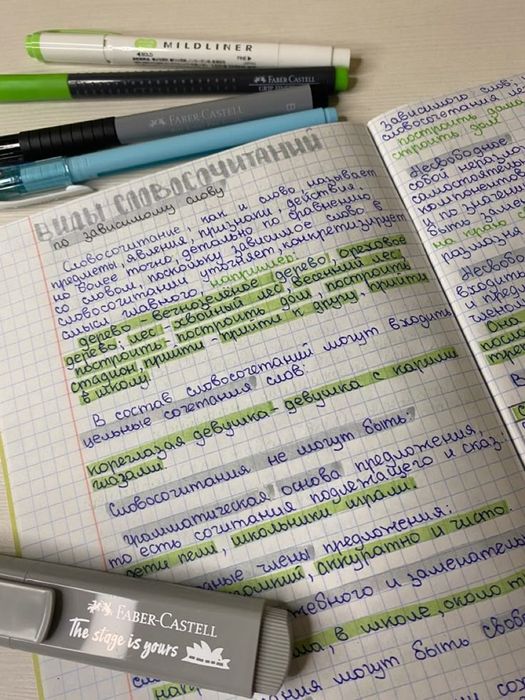 MILDLINER
BOLD
FINE
FABER-CASTELL
FABER-CASTELL
B
ВИДЫ СЛОВОСОЧИТАНИЙ
по зависимому слову
Словосочетание, как и слово, называет
предметы, явления, признаки, действия,
но более точно, детально по сравнению
со словом, поскольку зависимое слово в
словосочетании уточняет, конкретизирует
смысл главного, например:
дерево - вечнозелёное дерево, ореховое
дерево; лес - хвойный лес, весенний лес;
построить - построить дом, построить
стадион; прийти - прийти к другу, прийти
в школу.
В состав словосочетаний могут входить
цельные сочетания слов:
кореглазая девушка - девушка с карими
глазами.
Словосочетания не могут быть:
грамматическая основа предложения,
то есть сочетания подлежащего и сказ.:
дети пели, школьники играли.
ные члены предложения:
аккуратно и чисто.
ебного и заменатель
в школе, около
ния могут быть своб
зависимого слов
словосочетания
построить дом
строить дач
Несвободное
собой неразло
самостоятельн
компонентов
и по значени
быть замен
на краю
Несвобод
входит в
и предл
члена
Она
FABER-CASTELL
The stage is yours